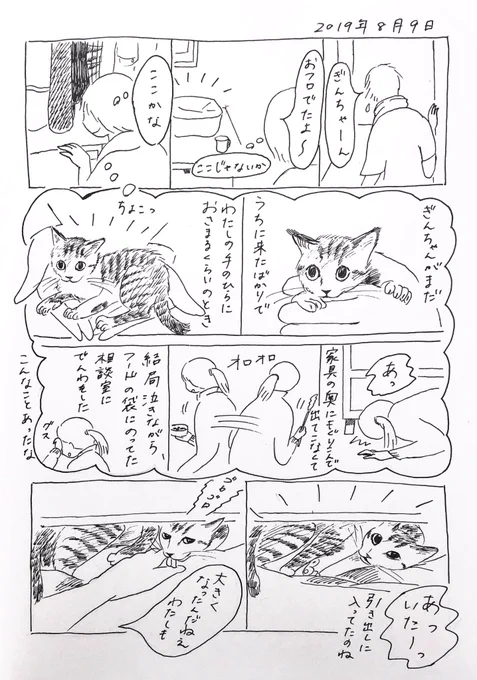 2019年8月9日
ぎんちゃーん
おフロでたよ〜
ここじゃないか
ここかな
ぎんちゃんがまだ
うちに来たばかりで
わたしの手のひらに
おさまるくらいのとき
ちょこっ
あっ
家具の奥にもぐりこんで
出てこなくて
オロオロ
結局泣きながら、
フードの袋にのってた
相談室に
でんわもした
グス
こんなことあったな
あっ
いたーっ
引き出しに
入ってたのね
ゴロゴロ
大きく
なったんだねえ
わたしも